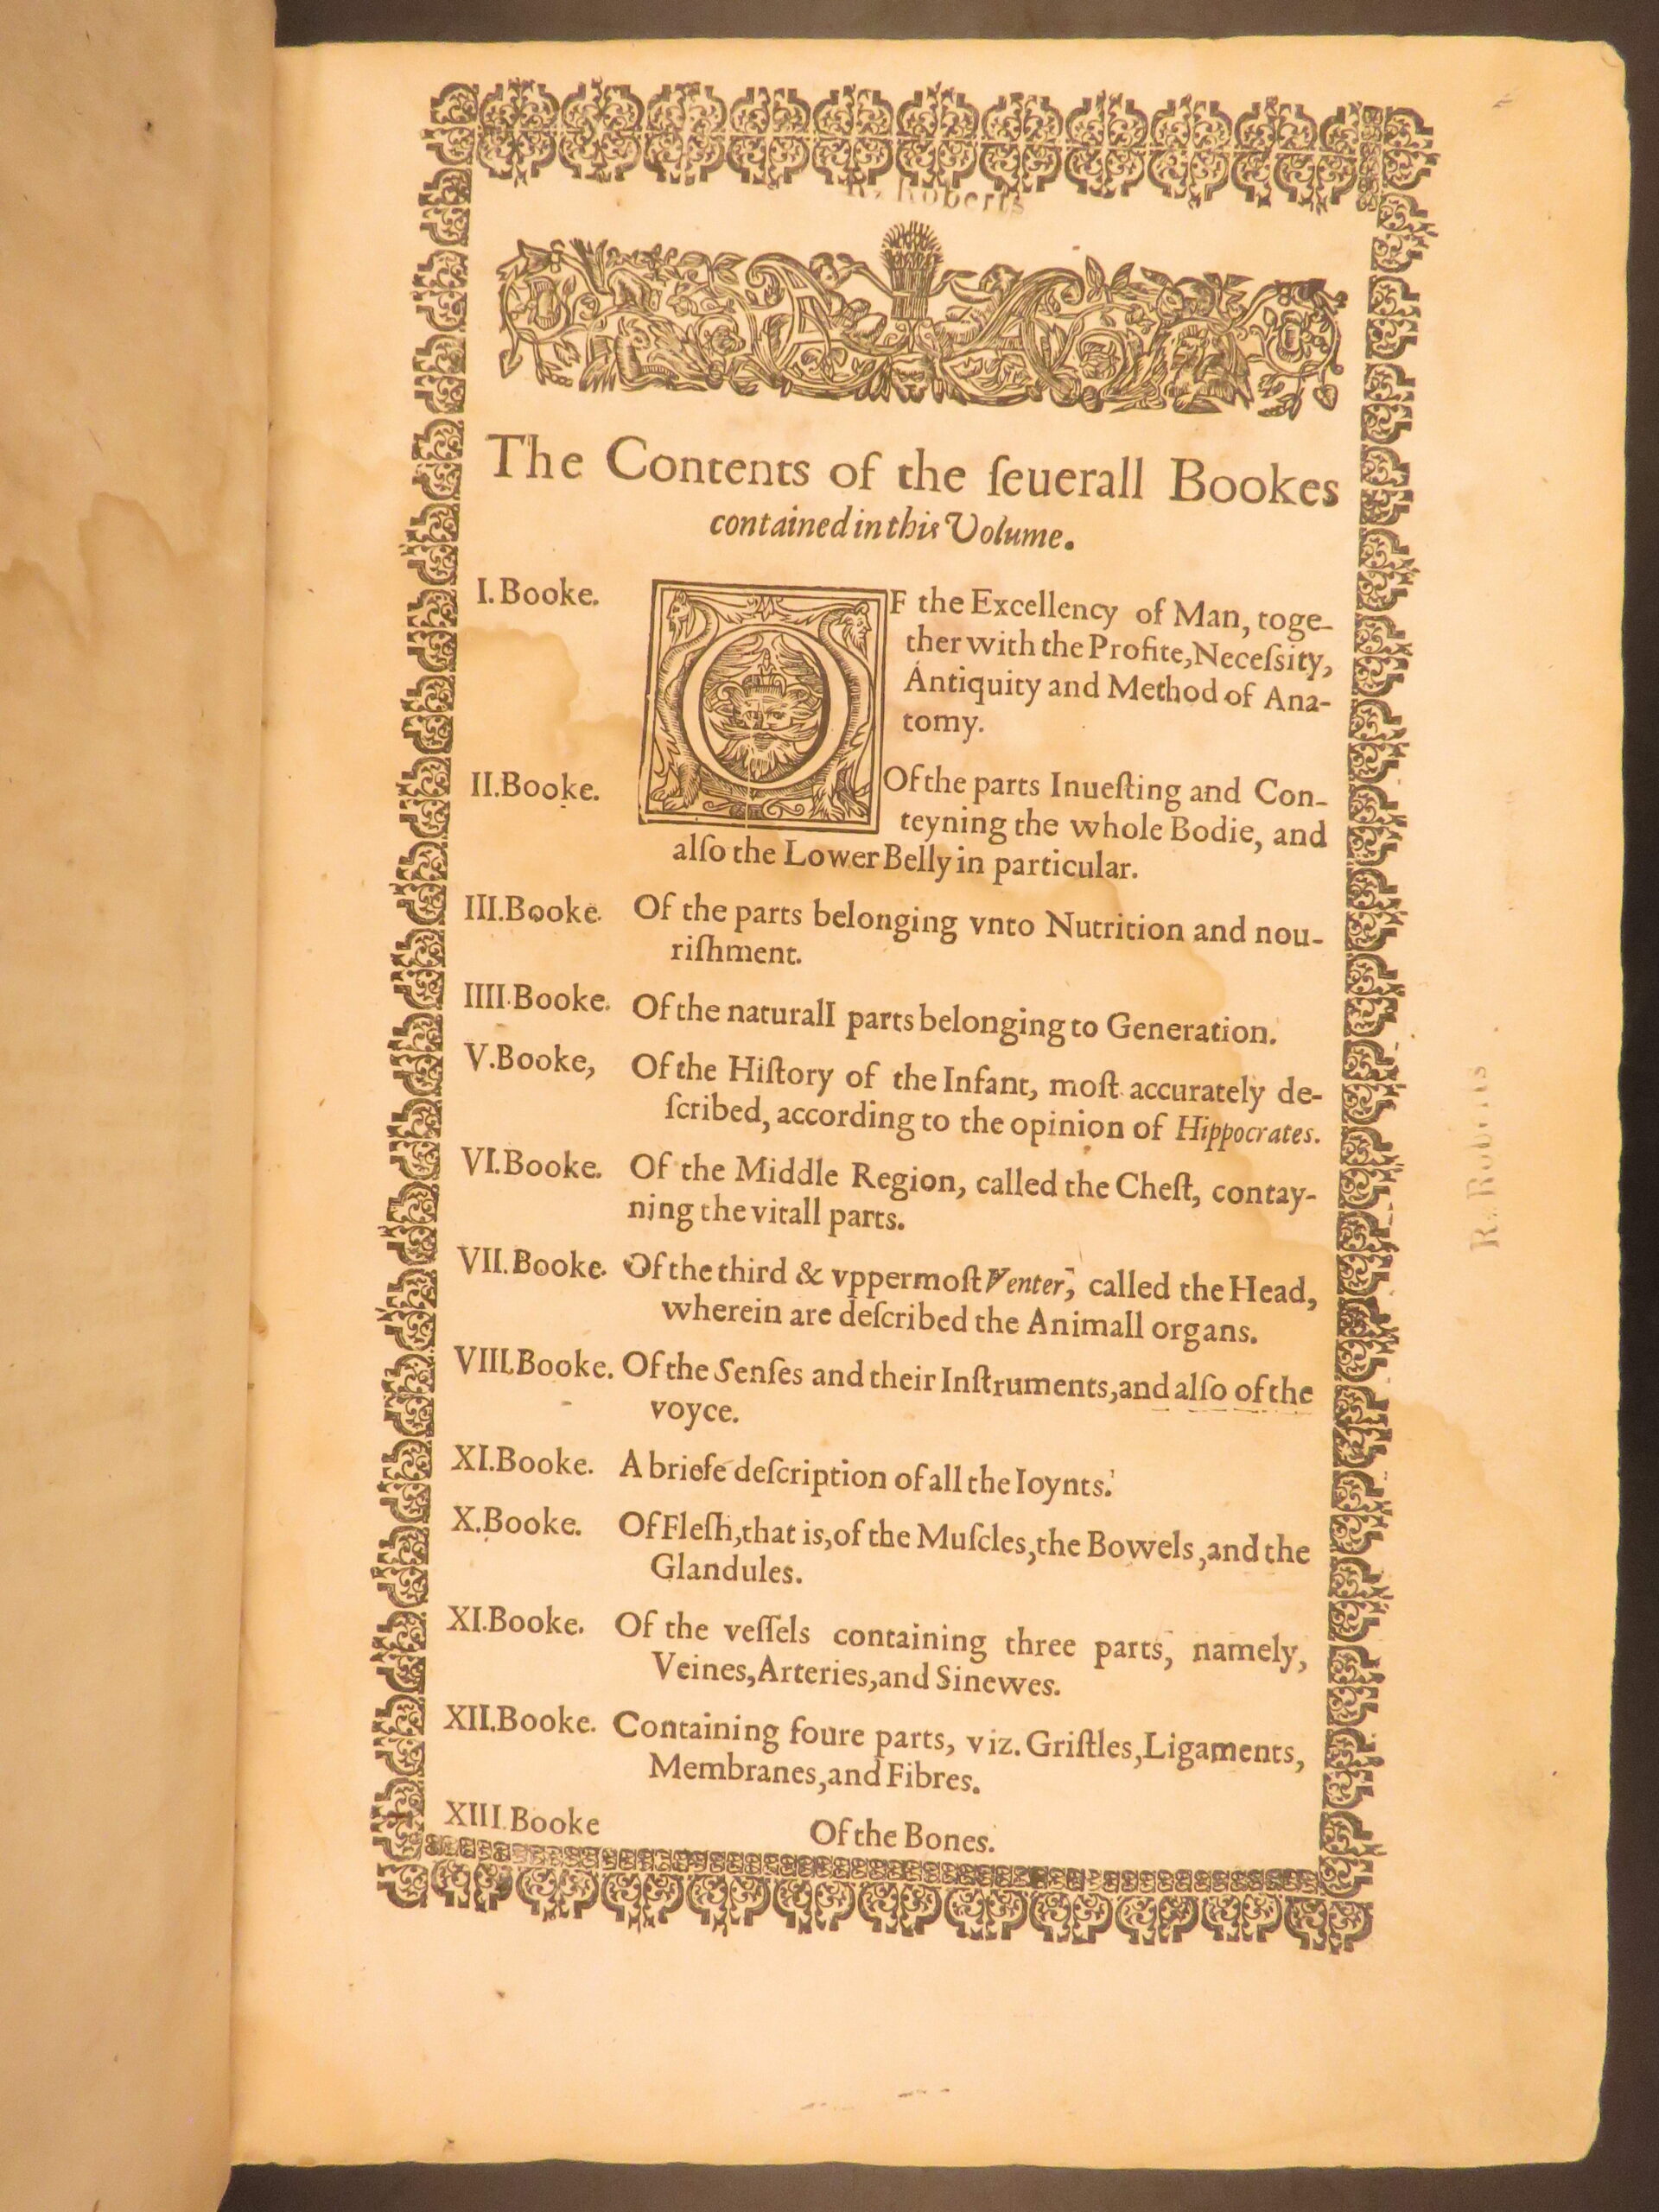 R. Roberts
The Contents of the ſeuerall Bookes
contained in this Volume.
I. Booke. OF the Excellency of Man, toge-
ther with the Profite, Neceſsity,
Antiquity and Method of Ana-
tomy.
II. Booke. Of the parts Inueſting and Con-
teyning the whole Bodie, and
alſo the Lower Belly in particular.
III. Booke. Of the parts belonging vnto Nutrition and nou-
riſhment.
IIII. Booke. Of the naturall parts belonging to Generation.
V. Booke, Of the Hiſtory of the Infant, moſt accurately de-
ſcribed, according to the opinion of Hippocrates.
VI. Booke. Of the Middle Region, called the Cheſt, contay-
ning the vitall parts.
VII. Booke. Of the third & vppermoſt Venter, called the Head,
wherein are deſcribed the Animall organs.
VIII. Booke. Of the Senſes and their Inſtruments, and alſo of the
voyce.
XI. Booke. A briefe deſcription of all the Ioynts.
X. Booke. Of Fleſh, that is, of the Muſcles, the Bowels, and the
Glandules.
XI. Booke. Of the veſſels containing three parts, namely,
Veines, Arteries, and Sinewes.
XII. Booke. Containing foure parts, viz. Griſtles, Ligaments,
Membranes, and Fibres.
XIII. Booke Of the Bones.
R. Roberts